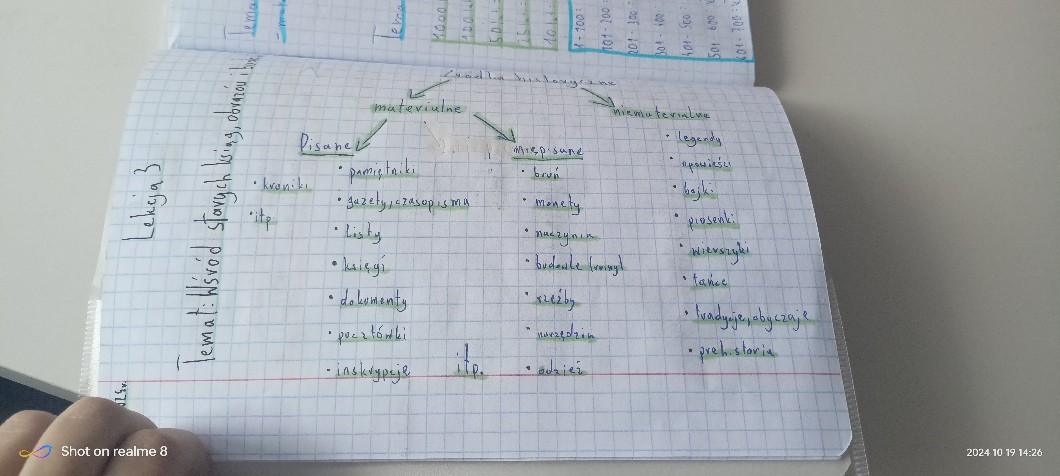 Tema
Tema
1000
100
50
10
1-100:
101-200:
201-300:
301-400
401-500:
501-600
601-700:
Lekcja 3
Temat: Wśród starych ksiąg, obrazów i
Źródła historyczne
materialne
niematerialne
Pisane
• pamiętniki
• gazety, czasopisma
• listy
• księgi
• dokumenty
• pocztówki
• inskrypcje
• kroniki
• itp
niepisane
• broń
• monety
• naczynia
• budowle (ruiny)
• rzeźby
• narzędzia
• odzież
itp.
• legendy
• opowieści
• bajki
• piosenki
• wierszyki
• tańce
• tradycje, obyczaje
• prehistoria
Shot on realme 8
2024 10 19 14:26